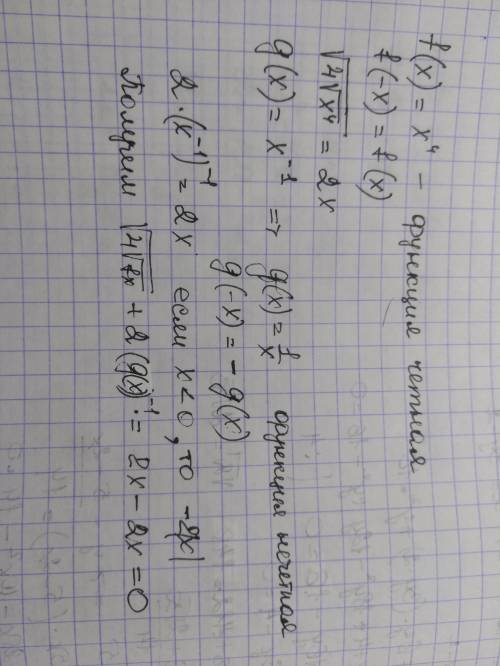 f(x) = x⁴ – функция четная
f(-x) = f(x)
√4√x⁴ = 2x
g(x) = x⁻¹ => g(x) = 1/x функция нечетная
g(-x) = - g(x)
2·(x⁻¹)⁻¹ = 2x если x<0, то -2|x|
Получим √4√fx + 2(g(x))⁻¹ = 2x - 2x = 0